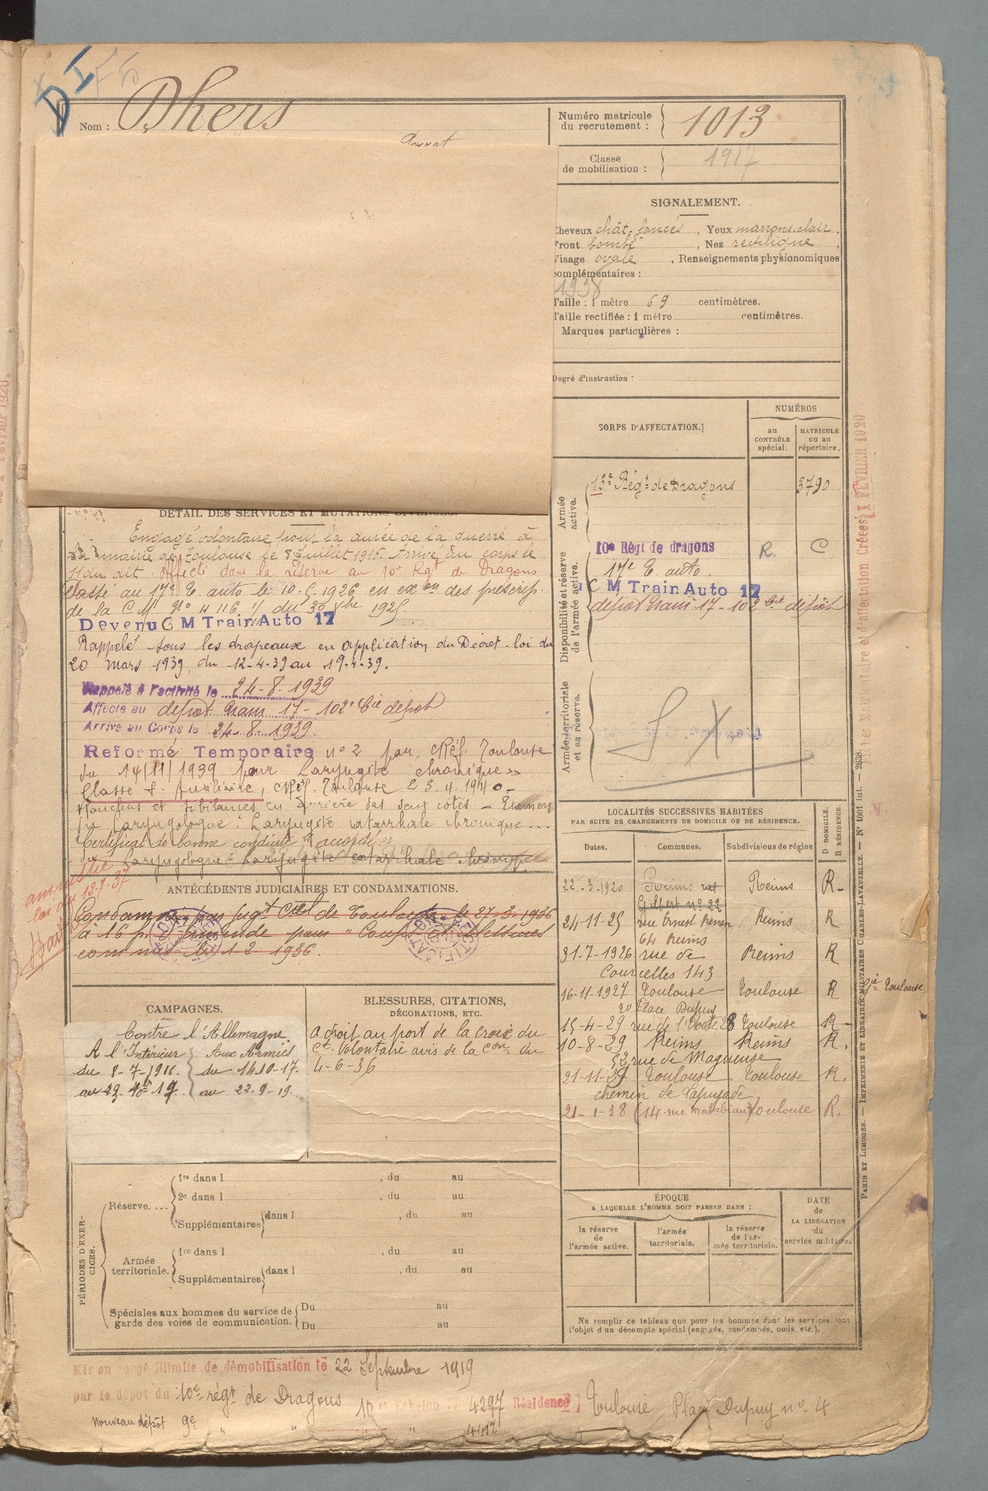 DI
Nom : Dhers
Numéro matricule du recrutement : 1013
Classe de mobilisation : 1917
SIGNALEMENT.
Cheveux chât. foncés , Yeux marrons clair ,
Front bombé , Nez rectiligne ,
Visage ovale , Renseignements physionomiques
complémentaires :
1938
Taille : 1 mètre 69 centimètres.
Taille rectifiée : 1 mètre centimètres.
Marques particulières :
Degré d'instruction :
CORPS D'AFFECTATION.
NUMÉROS
au CONTRÔLE spécial.
MATRICULE ou au répertoire.
Armée active.
13e Régt de Dragons 3790
Disponibilité et réserve de l'armée active.
10e Régt de dragons R. C
17e E auto.
C M Train Auto 17
dépôt train 17 - 102e Cie dépôt
Armée territoriale et sa réserve.
DÉTAIL DES SERVICES ET MUTATIONS DIVERSES.
Engagé volontaire pour la durée de la guerre à
la mairie de Toulouse le 8 Juillet 1915. Arrivé au corps le
dit. Affecté dans la réserve au 10e Rgt de Dragons
Classé au 17e E. auto le 10-5-1926 en ex on des prescrip.
de la C.M. No 4116 du 30 1925
Devenu C M Train Auto 17
Rappelé sous les drapeaux en application du Décret-loi du
20 mars 1939, du 12-4-39 au 19-4-39.
Rappelé à l'activité le 24-8-1939
Affecté au dépôt train 17 - 102e Cie dépôt
Arrivé au Corps le 24-8-1939.
Reformé Temporaire no 2 par Toulouse
du 14/11/1939 pour Laryngite chronique
Classé S. Auxiliaire, Toulouse 23.4.1940
en arrière des deux cotés - Examen
laryngologue : Laryngite catarrhale chronique...
Certificat de bonne conduite accordé
laryngologue : Laryngite catarrhale chronique
amnistié
loi du 12-7-37
ANTÉCÉDENTS JUDICIAIRES ET CONDAMNATIONS.
Condamné par jugt de Toulouse le 27-3-1936
à 16 f. d'amende pour "Coups
1936.
CAMPAGNES.
Contre l'Allemagne
A l'Intérieur Aux Armées
du 8-7-191 du 14.10-17.
au au 22-9-19.
BLESSURES, CITATIONS, DÉCORATIONS, ETC.
A droit au port de la croix du
Ct Volontaire avis de la Con du
4-6-36
LOCALITÉS SUCCESSIVES HABITÉES
PAR SUITE DE CHANGEMENTS DE DOMICILE OU DE RÉSIDENCE.
Dates. Communes. Subdivisions de région D DOMICILE. R RÉSIDENCE.
22-3-1920 Reims rue Gilbert no 22 Reims R
24-11-25 rue Ernest Renan 64 Reims Reims R
31-7-1926 rue de Courcelles 143 Reims R
16-11-1927 Toulouse Place Dupuy Toulouse R
15-4-29 rue de l' 28 Toulouse R
10-8-29 Reims 52 rue de Reims R.
21-11-29 Toulouse chemin de Lapujade Toulouse R.
21-1-38 (14 rue Toulouse R.
PÉRIODES D'EXERCICES.
Réserve....
1re dans l , du au
2e dans l , du au
Supplémentaires dans l , du au
Armée territoriale.
1re dans l , du au
Supplémentaires dans l , du au
Spéciales aux hommes du service de garde des voies de communication.
Du au
Du au
ÉPOQUE
A LAQUELLE L'HOMME DOIT PASSER DANS :
la réserve de l'armée active.
l'armée territoriale.
la réserve de l'armée territoriale.
DATE de LA LIBÉRATION du service militaire.
Ne remplir ce tableau que pour les hommes dont les services font
l'objet d'un décompte spécial (engagés, condamnés, omis, etc.).
Mis en congé illimité de démobilisation le 22 Septembre 1919
par le dépôt du 10e régt de Dragons échelon No 4297 Résidence Toulouse Place Dupuy no 4
Nouveau dépôt 9e " " 4417
PARIS ET LIMOGES. — IMPRIMERIE ET LIBRAIRIE MILITAIRES CHARLES-LAVAUZELLE.
FÉVRIER 1920